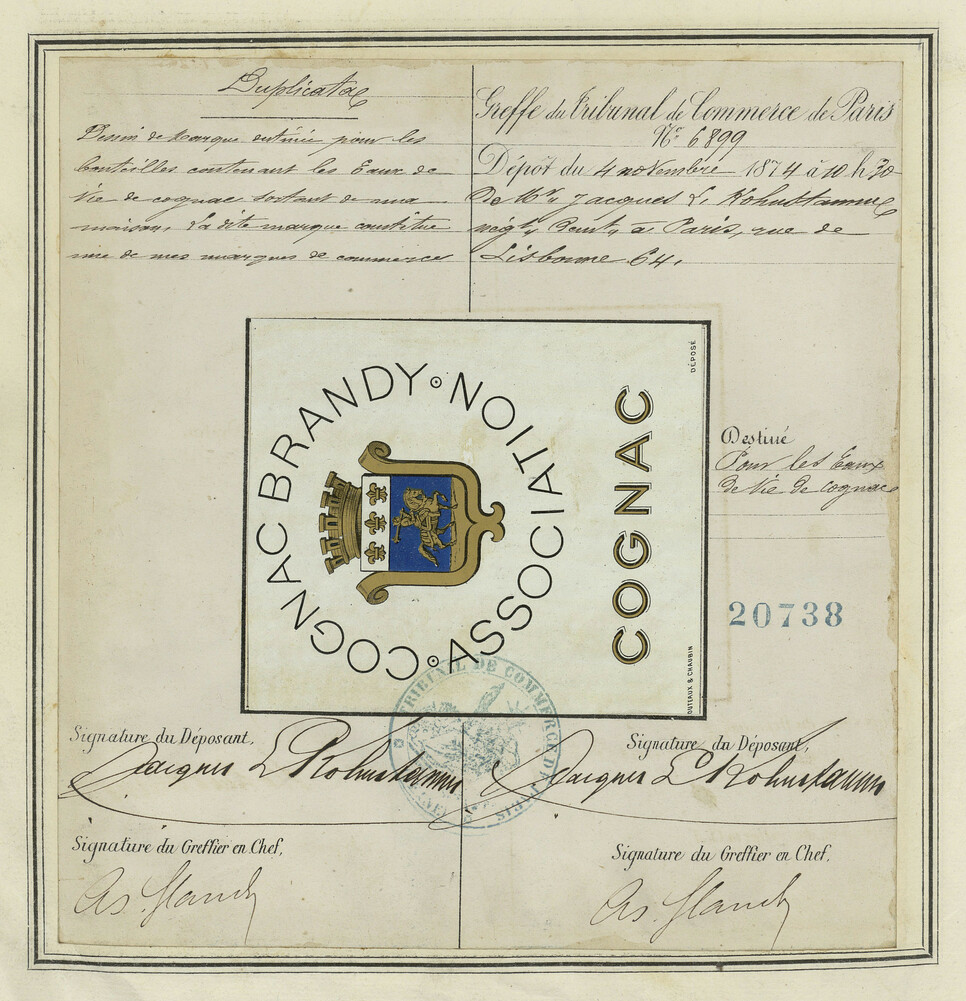 Duplicata
Dessin de marque destinée pour les
bouteilles contenant les Eaux de
Vie de cognac sortant de ma
maison, La dite marque constitue
une de mes marques de commerce
Greffe du Tribunal de Commerce de Paris
No. 6899
Dépôt du 4 novembre 1874 à 10 h 30
De Mr. Jacques L. Kohnstamm
négt., Demt. à Paris, rue de
Lisbonne 64.
COGNAC BRANDY
ASSOCIATION
COGNAC
DÉPOSÉ
OUTEAUX & CHAUBIN
Destiné
Pour les Eaux
de Vie de Cognac
20738
TRIBUNAL DE COMMERCE DE PARIS
Signature du Déposant,
Jacques L Kohnstamm
Signature du Déposant,
Jacques L Kohnstamm
Signature du Greffier en Chef,
Signature du Greffier en Chef,